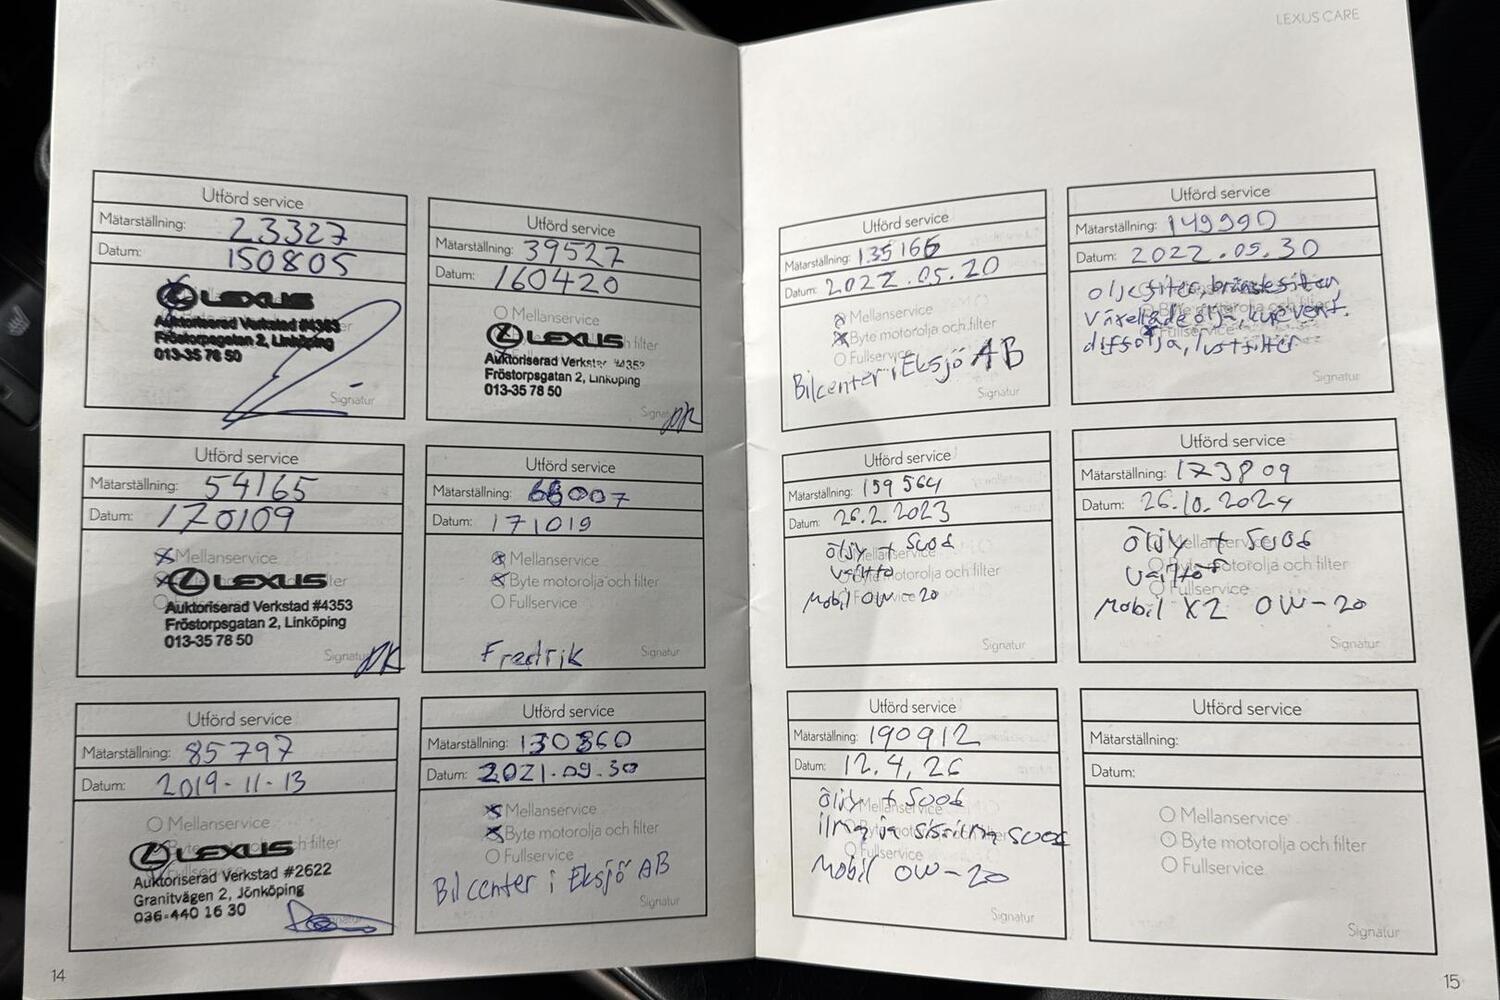 LEXUS CARE
Utförd service
Mätarställning: 23327
Datum: 150805
LEXUS
Auktoriserad Verkstad #4353
Fröstorpsgatan 2, Linköping
013-35 78 50
Signatur
Utförd service
Mätarställning: 39527
Datum: 160420
Mellanservice
LEXUS
Auktoriserad Verkstad #4353
Fröstorpsgatan 2, Linköping
013-35 78 50
Utförd service
Mätarställning: 54165
Datum: 170109
Mellanservice
LEXUS
Auktoriserad Verkstad #4353
Fröstorpsgatan 2, Linköping
013-35 78 50
Signatur
Utförd service
Mätarställning: 68007
Datum: 171019
Mellanservice
Byte motorolja och filter
Fullservice
Fredrik
Signatur
Utförd service
Mätarställning: 85797
Datum: 2019-11-13
Mellanservice
LEXUS
Auktoriserad Verkstad #2622
Granitvägen 2, Jönköping
036-440 16 30
Utförd service
Mätarställning: 130360
Datum: 2021.09.30
Mellanservice
Byte motorolja och filter
Fullservice
Bilcenter i Eksjö AB
Signatur
14
Utförd service
Mätarställning: 135166
Datum: 2022.05.20
Mellanservice
Byte motorolja och filter
Fullservice
Bilcenter i Eksjö AB
Signatur
Utförd service
Mätarställning: 149990
Datum: 2022.09.30
oljefilter, bränslefilter,
växellådeolja, kupévent.
diffolja, luftfilter
Signatur
Utförd service
Mätarställning: 159564
Datum: 26.2.2023
Öljy + Suod
vaihto
Mobil 0W-20
Signatur
Utförd service
Mätarställning: 173809
Datum: 26.10.2024
Öljy + Suod
vaihto
Mobil X2 0W-20
Signatur
Utförd service
Mätarställning: 190912
Datum: 12.4.26
öljy + Suod
ilma ja sisäilma suod
Mobil 0W-20
Signatur
Utförd service
Mätarställning:
Datum:
Mellanservice
Byte motorolja och filter
Fullservice
Signatur
15